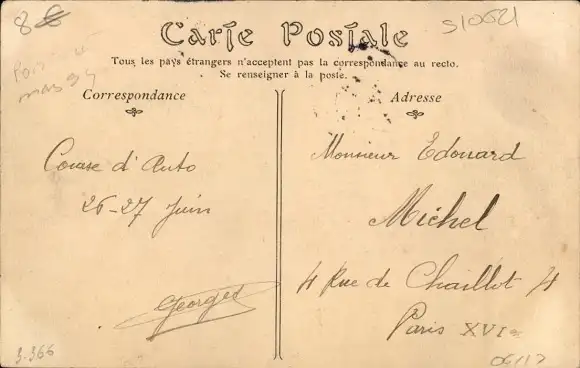 8 €
S10621
Carte Postale
Tous les pays étrangers n'acceptent pas la correspondance au recto.
Se renseigner à la poste.
mars 94
Correspondance
Course d'Auto
26-27 Juin
Georges
3.366
Adresse
Monsieur Edouard
Michel
4 Rue de Chaillot 4
Paris XVIe